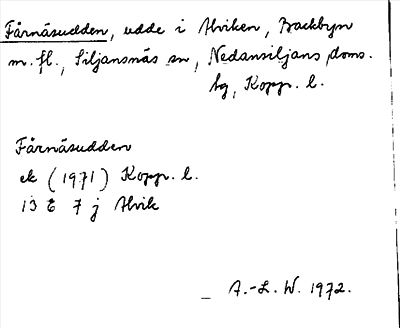 Fårnäsudden, udde i Alviken, Backbyn
m. fl., Siljansnäs sn, Nedansiljans doms.
hg, Kopp. l.
Fårnäsudden
ek (1971) Kopp. l.
13 E 7 j Alvik
A.-L. W. 1972.